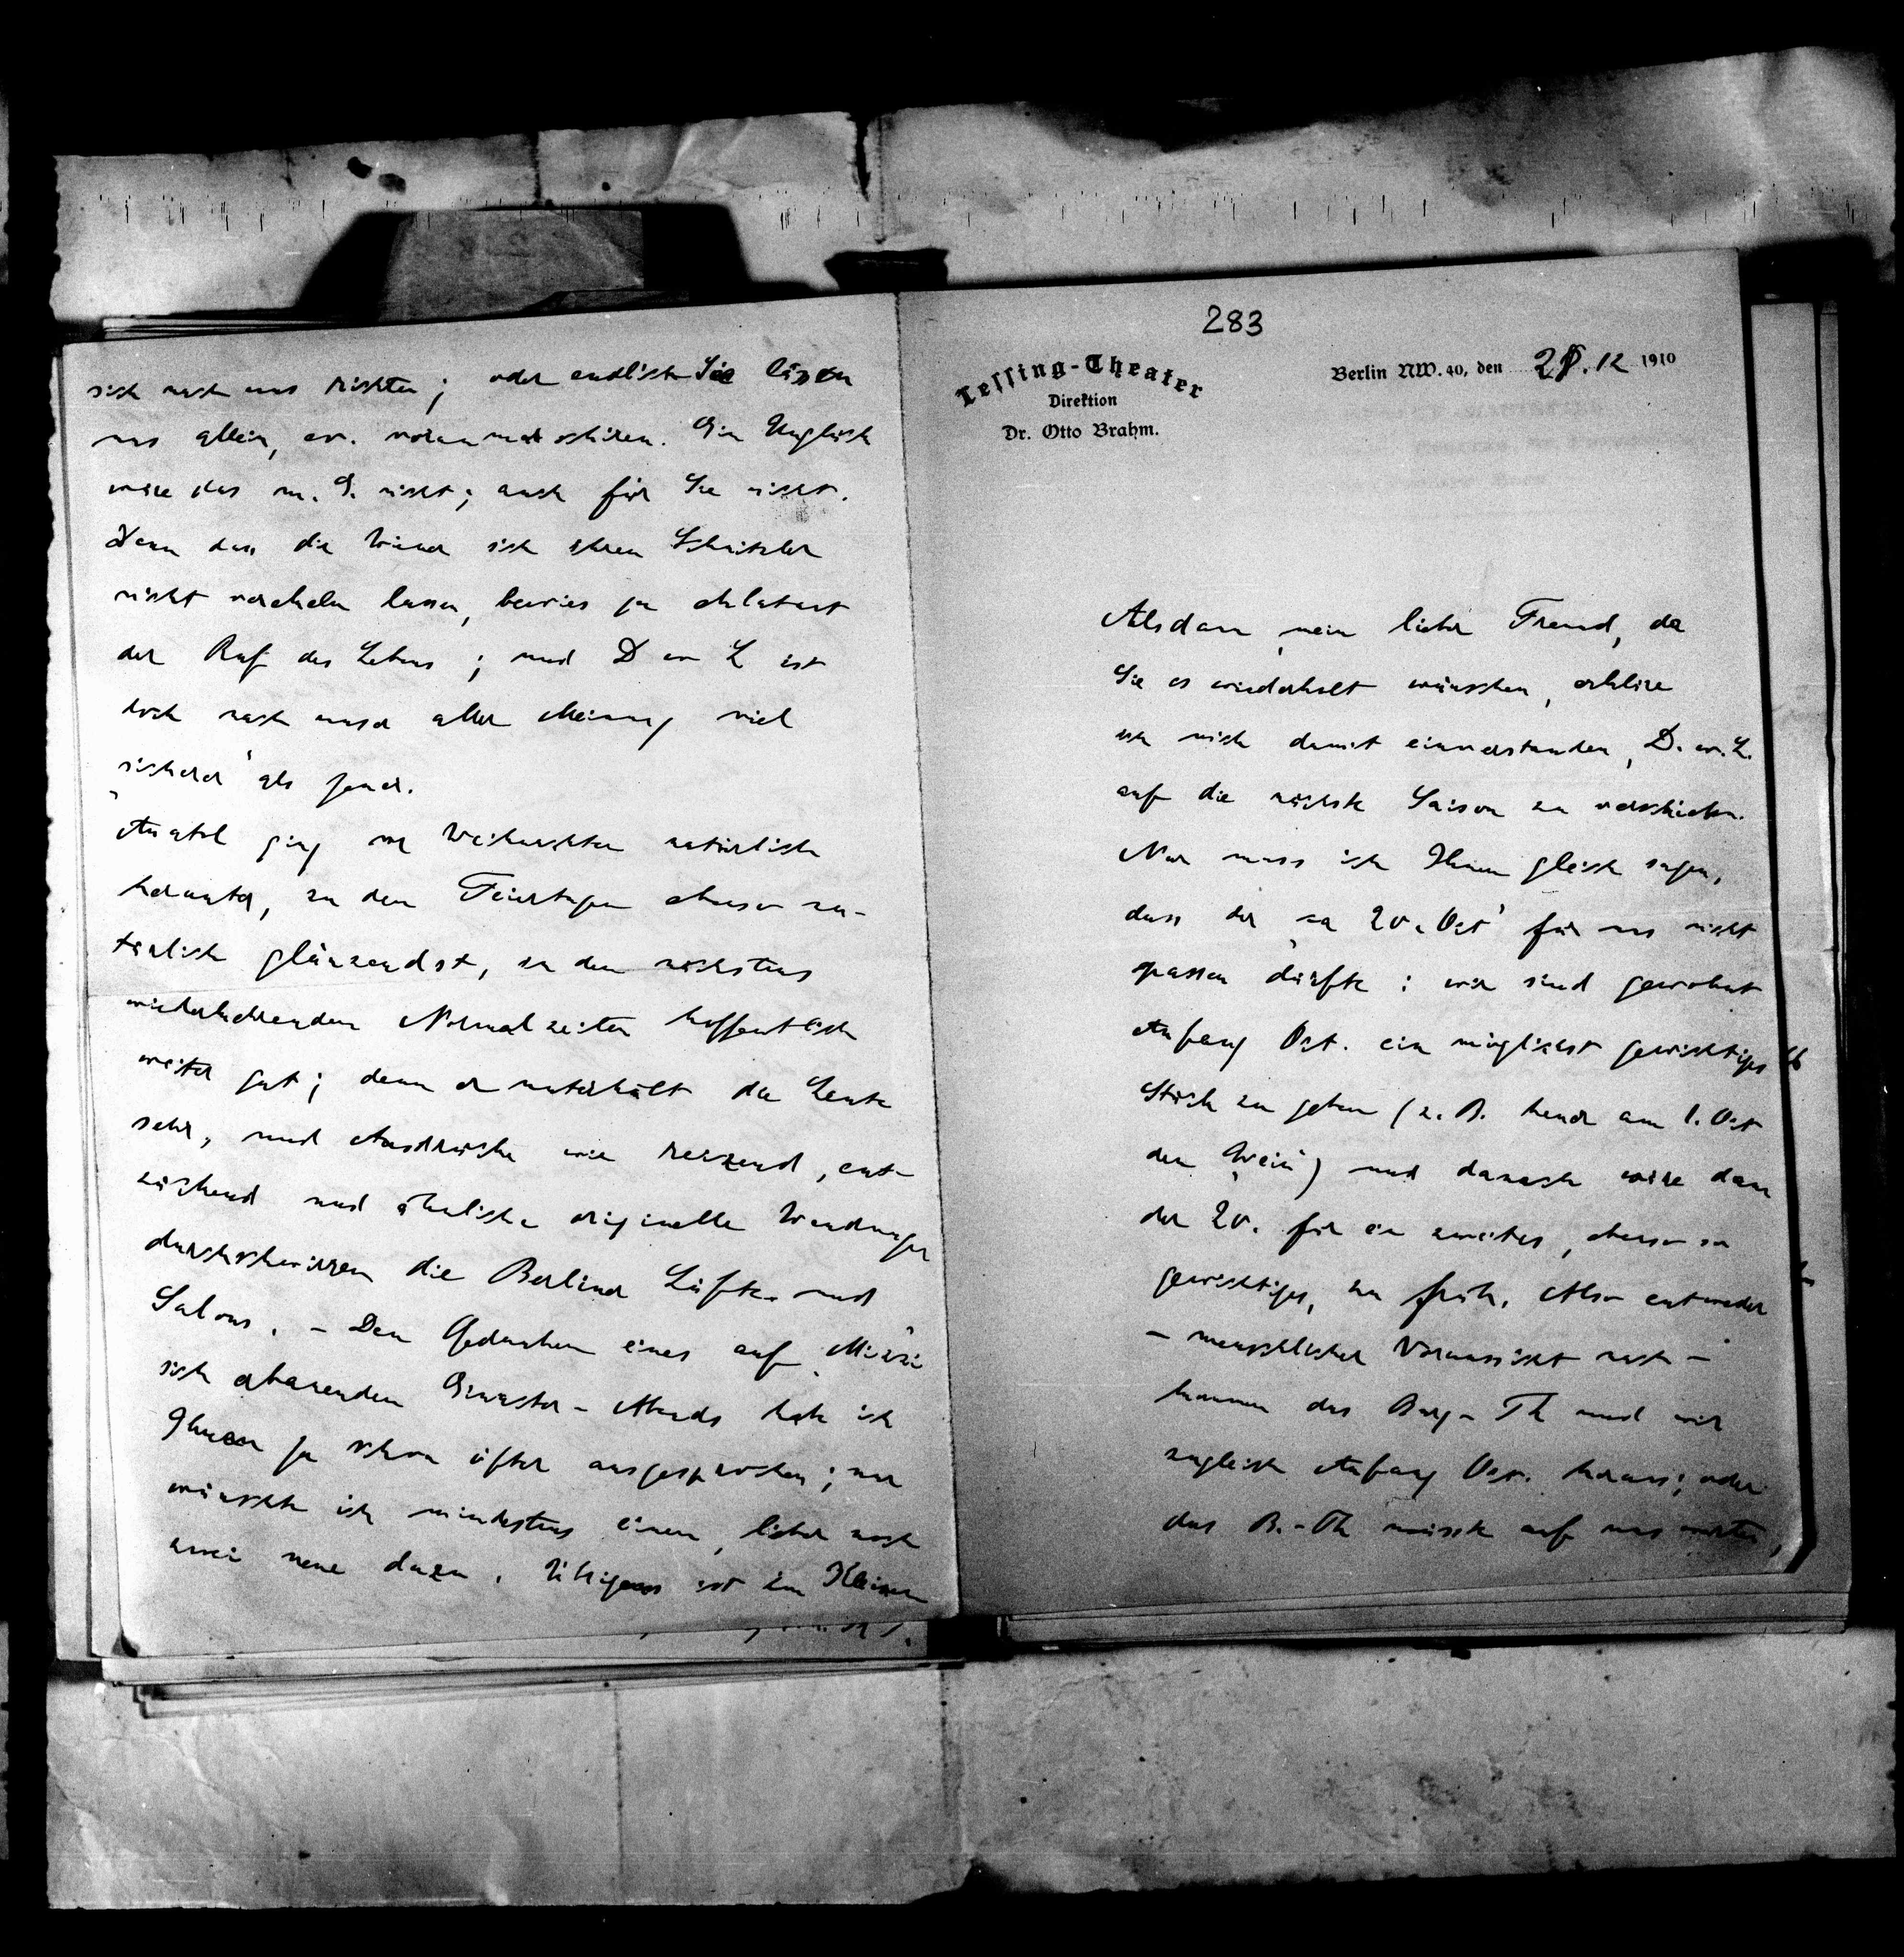 283
Lessing-Theater
Direktion
Dr. Otto Brahm.
Berlin NW. 40, den 28. 12 1910
Alsdann, mein lieber Freund, da
Sie es wiederholt wünschen, erkläre
ich mich damit einverstanden, D. w. L.
auf die nächste Saison zu verschieben.
Nur muss ich Ihnen gleich sagen,
dass der „ca 20. Oct“ für uns nicht
passen dürfte: wir sind gewohnt
Anfang Oct. ein möglichst gewichtiges
Stück zu geben (z. B. heuer am 1. Oct
den ) und danach wäre dann
der 20. für ein zweites, ebenso
gewichtiges, zu früh. Also entweder
– menschlicher Voraussicht nach –
kommen das Burg-Th und wir
zugleich Anfang Oct. heraus; oder
das B.-Th müsste auf uns warten,
sich nach uns richten; oder endlich Sie liessen
uns allein, ev. voranmarschiren. Ein Unglück
wäre das m. E. nicht; auch für Sie nicht.
Denn dass die Wiener sich ihren Schnitzler
nicht verekeln lassen, bewies ja eklatant
der Ruf des Lebens; und D w L ist
doch nach unser aller Meinung viel
„sicherer“ als jener.
Anatol ging vor Weihnachten natürlich
herunter, zu den Feiertagen ebenso na-
türlich glänzendst, in den nächstens
wiederkehrenden Normalzeiten hoffentlich
weiter gut; denn er unterhält die Leute
sehr, und Ausdrücke wie reizend, ent-
zückend und ähnliche originelle Wendungen
durchschwirren die Berliner Lüfte und
Salons. – Den Gedanken eines auf „Mizzi“
sich erbauenden Einacter-Abends habe ich
Ihnen ja schon öfter ausgesprochen; nur
wünschte ich mindestens einen, lieber noch
zwei neue dazu. Übrigens ist im Kleinen